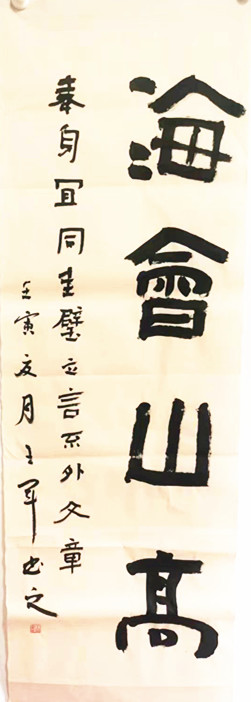 海會山高
奉身宜同圭璧立言系外文章
壬寅夏月王军书之